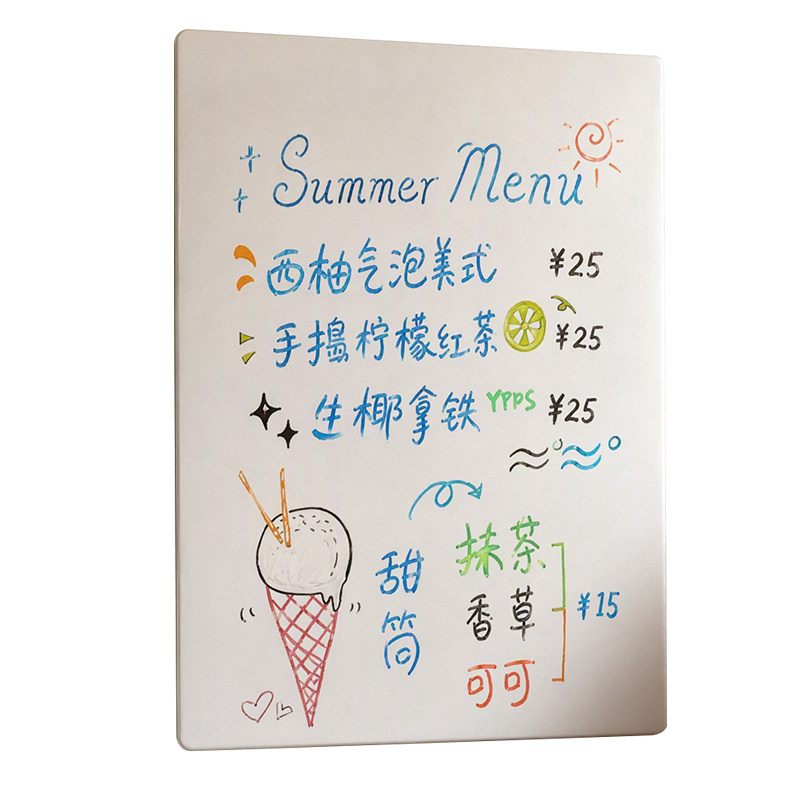 Summer Menu
西柚气泡美式 ¥25
手搗柠檬红茶 ¥25
生椰拿铁 YPPS ¥25
甜筒
抹茶
香草 ¥15
可可